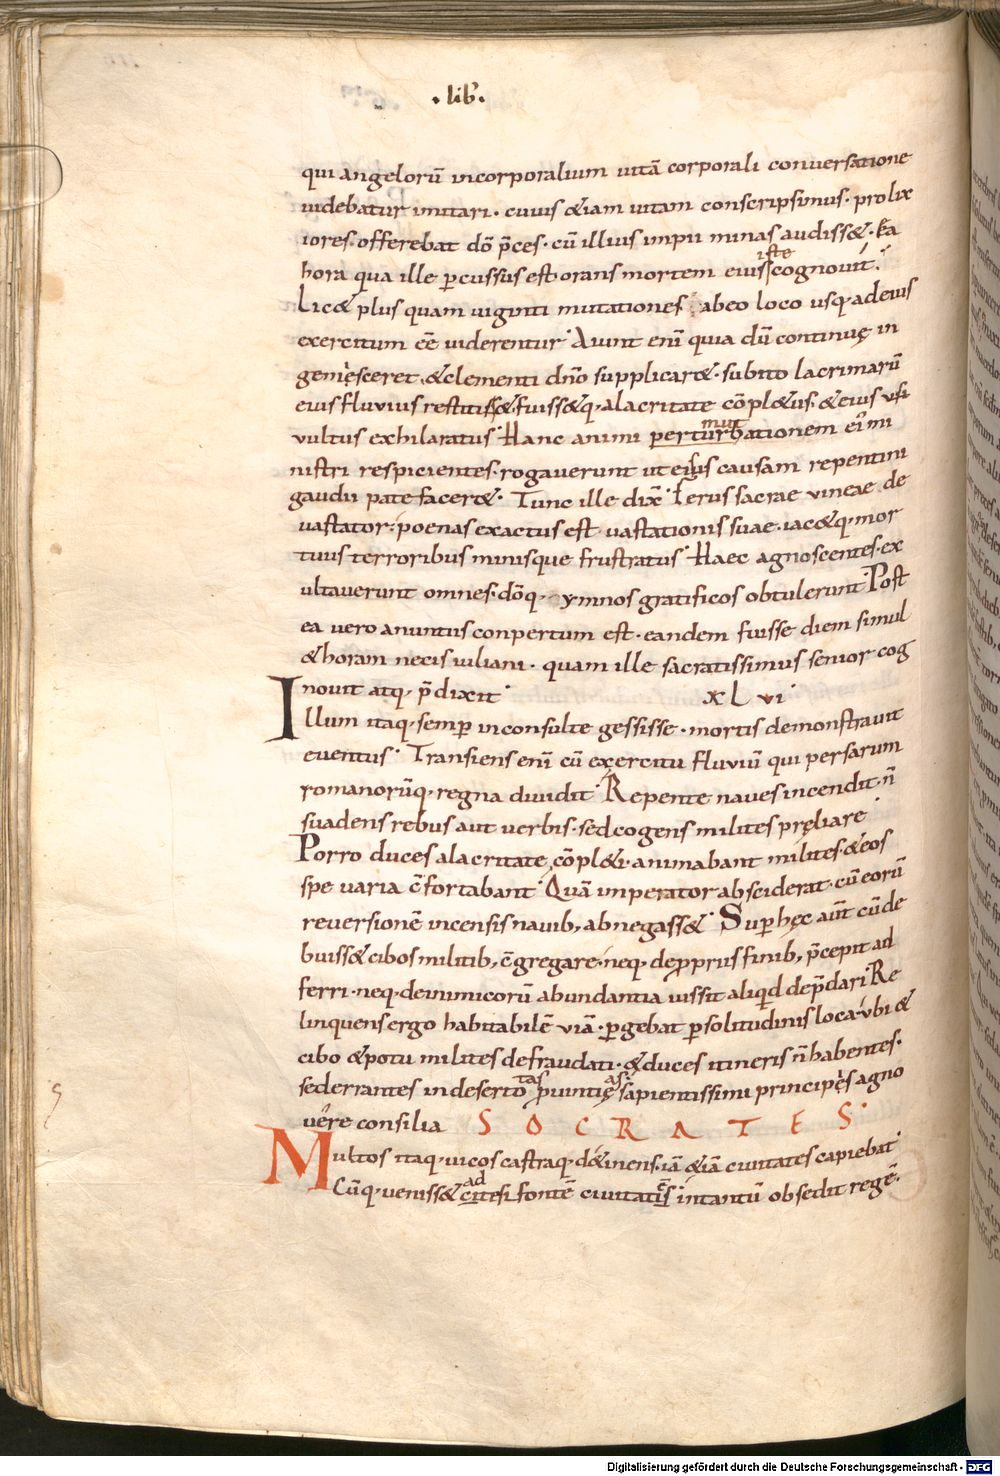 .lib̄.
qui angelorū incorporalium uitā corporali conuersatione
uidebatur imitari. cuius &iam uitam conscripsimus. prolix
iores offerebat dō p̄ces. cū illius impii minas audiss&. Ea
hora qua ille percussus est orans mortem eius iste cognouit.
Lic& plus quam uiginti mutationes abeo loco usq. ad eius
exercitum eē uiderentur. Aiunt enī quia dū continuę in
gemesceret, & clementi dnō supplicar&. subito lacrimarū
eius fluuius restitiss&. fuiss&q. alacritate cōpl&us. & eius usi
uultus exhilaratus. Hanc animi perturbationem mut ei mi
nistri respicientes. rogauerunt ut eius causam repentini
gaudii pate facer&. Tunc ille dix̄. Ferus sacrae uineae de
uastator. poenas exactus est uastationis suae. iac&q. mor
tuus terroribus minisque frustratus. Haec agnoscentes. ex
ultauerunt omnes. dōq. ymnos gratificos obtulerunt. Post
ea uero anuntiis conpertum est. eandem fuisse diem simul
& horam necis iuliani. quam ille sacratissimus senior cog
nouit atq. p̄dixit. XLvi
Illum itaq. semper inconsulte gessisse. mortis demonstrauit
euentus. Transiens enī cū exercitu fluuiū qui persarum
romanorūq. regna diuidit. Repente naues incendit. n̄
suadens rebus aut uerbis. sed cogens milites pręliare.
Porro duces alacritate cōpl&i. animabant milites. & eos
spe uaria c̄fortabant. Quā imperator absciderat. cū eorū
reuersionē incensis nauib, abnegass&. Super hęc aut̄ cū de
buiss& cibos militib, c̄gregare. neq. depropriis finib, p̄cepit ad
ferri. neq. deinimicorū abundantia iussit aliqd dep̄dari. Re
linquens ergo habitabilē uiā. pergebat persolitudinis loca. ubi &
cibo & potu milites defraudati. & duces itineris n̄ habentes.
sed errantes in deserto puintię tas as sapientissimi principes agno
uere consilia SOCRATES.
Multos itaq. uicos castraq. d&inens. iā &iā ciuitates capiebat.
Cūq. ueniss& ad citesifontē ciuitatēs intantū obsedit regē.